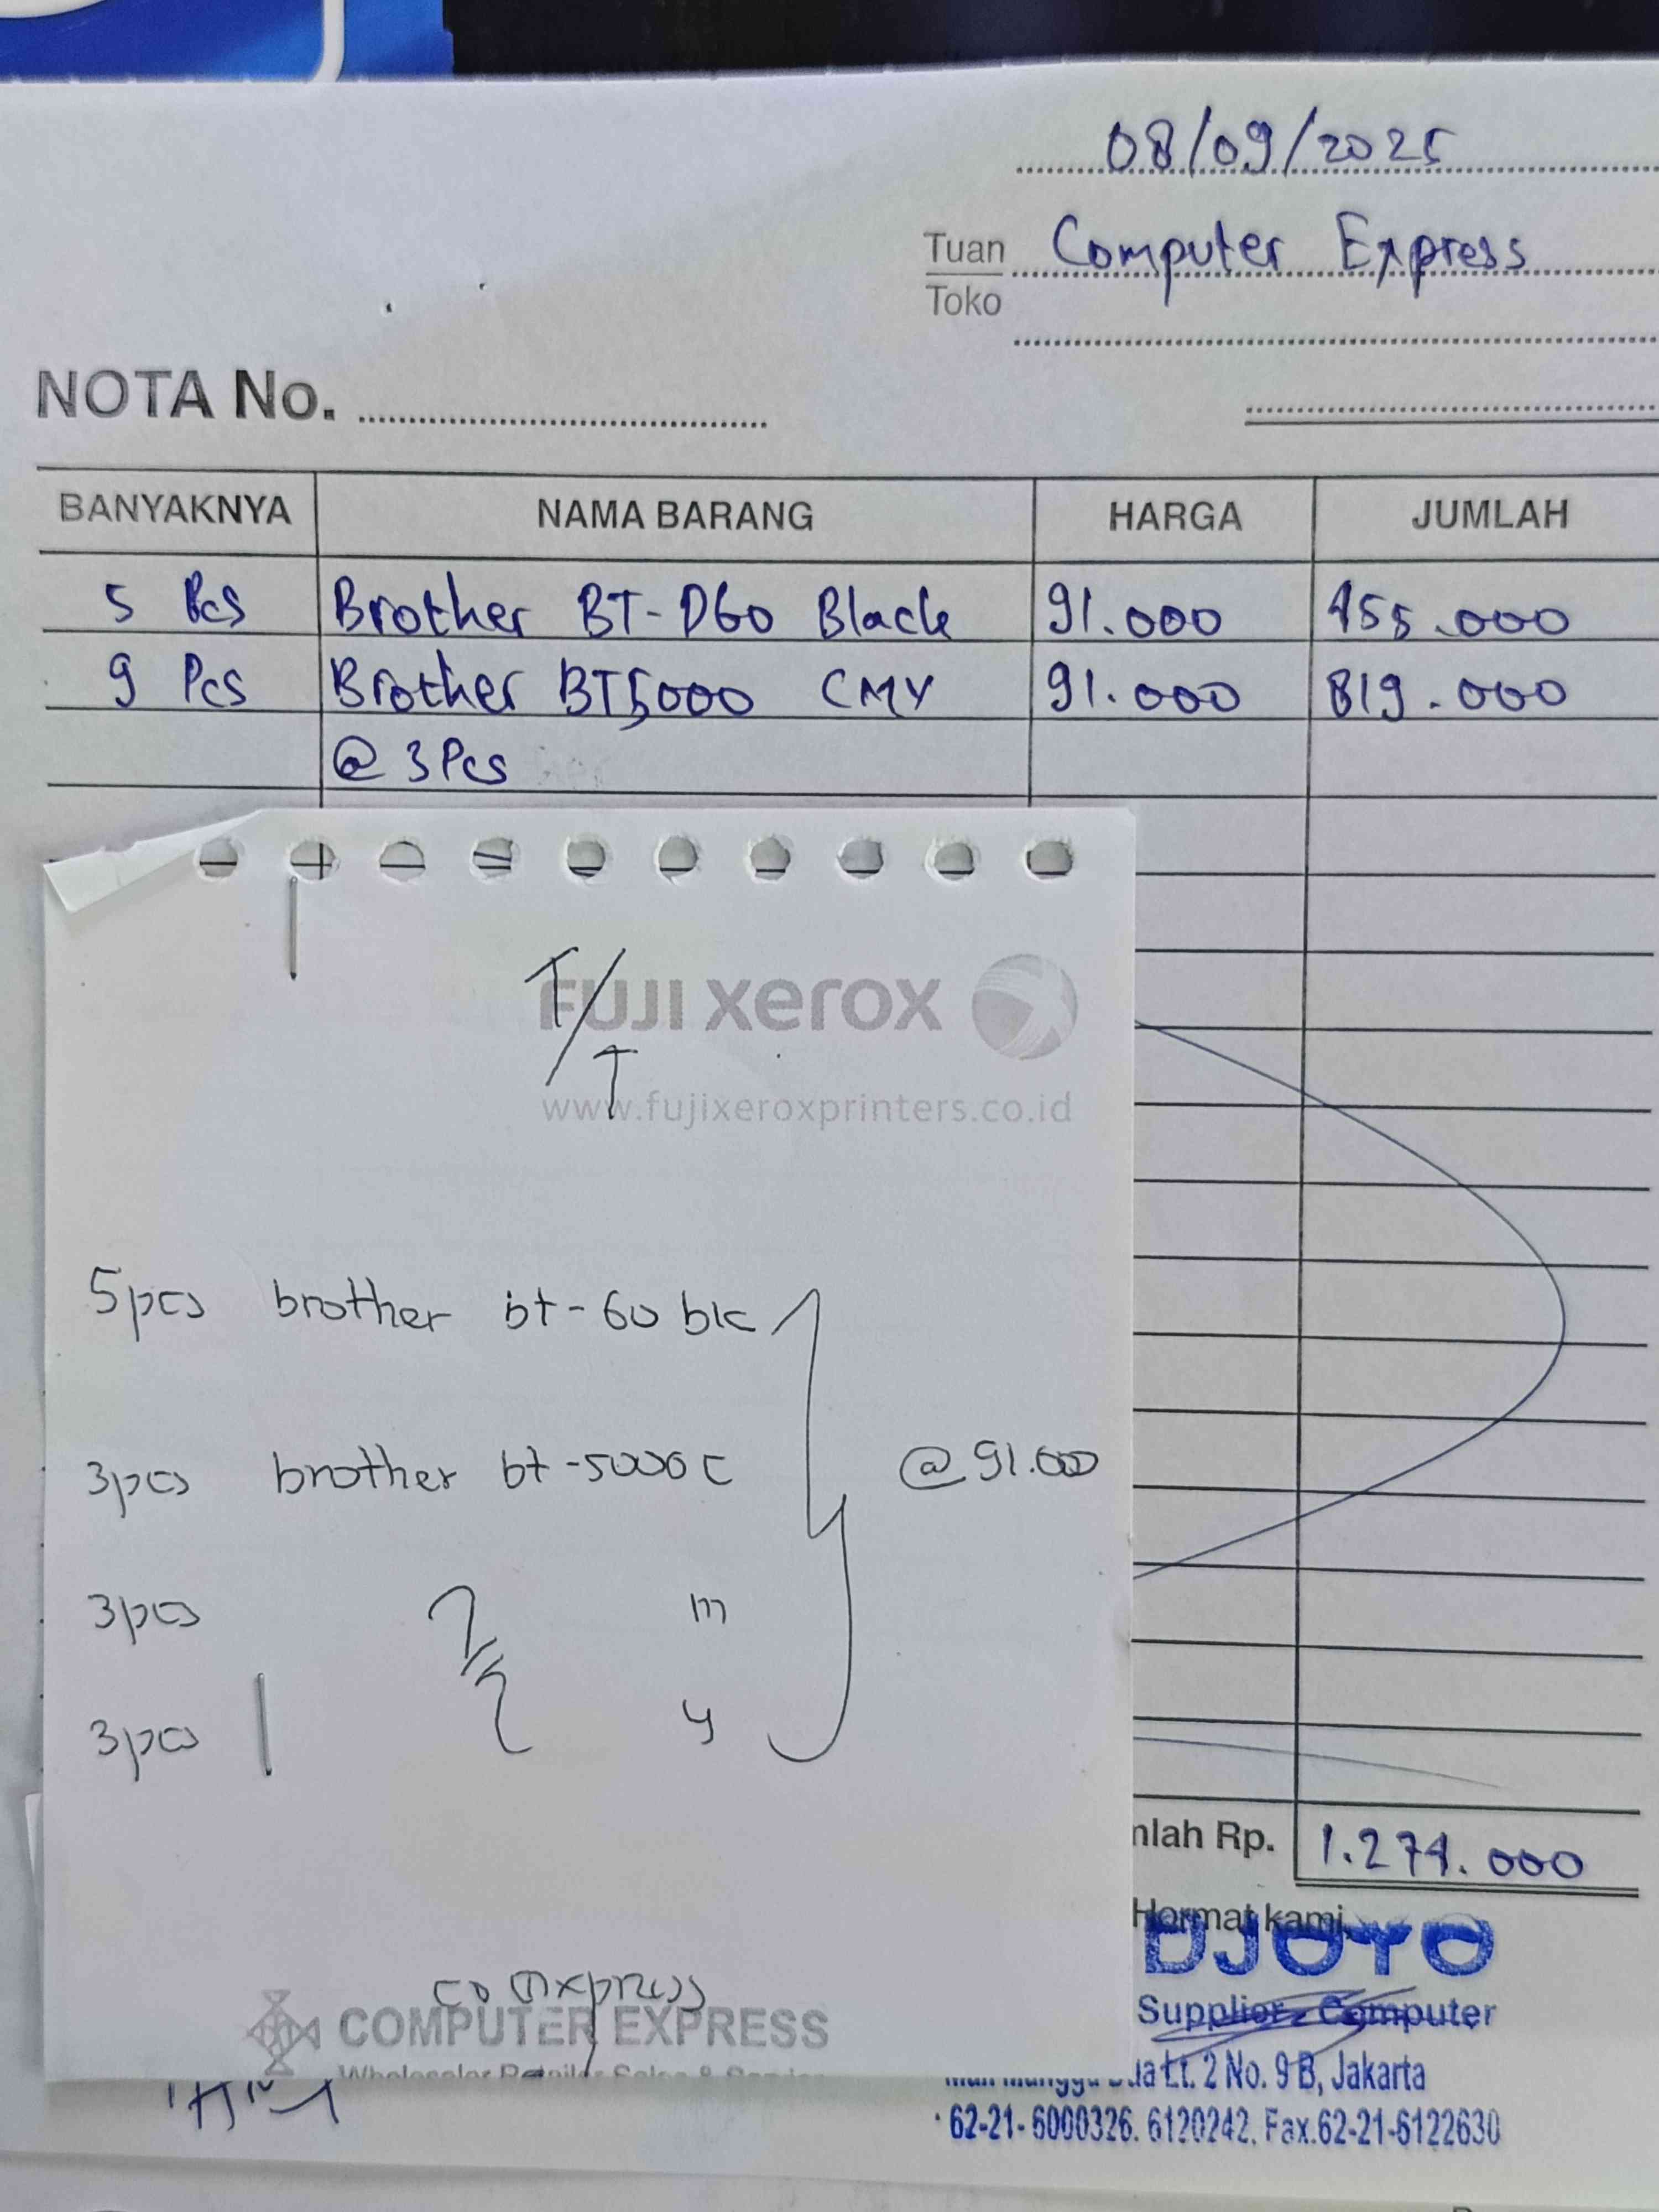 08/09/2025
Tuan Computer Express
Toko
NOTA No.
BANYAKNYA NAMA BARANG HARGA JUMLAH
5 Pcs Brother BT-D60 Black 91.000 455.000
9 Pcs Brother BT5000 CMY 91.000 819.000
@ 3 Pcs
T/T
FUJI xerox
www.fujixeroxprinters.co.id
5pcs brother bt-60 bk
3pcs brother bt-5000 C @ 91.000
3pcs m
3pcs y
mlah Rp. 1.274.000
Hormat kami,
DJOYO
Supplier - Computer
COMPUTER EXPRESS
Lt. 2 No. 9 B, Jakarta
62-21- 6000326. 6120242. Fax.62-21-6122630